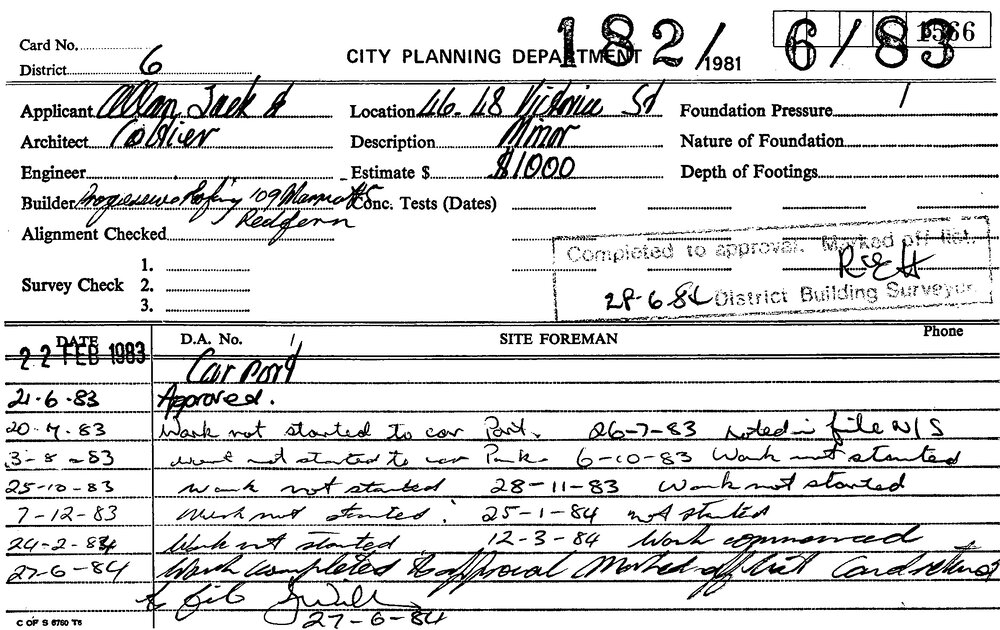 Card No.
182/1981 6/83 1566
District 6 CITY PLANNING DEPARTMENT
Applicant Allan Jack & Location 46-48 Victoria St Foundation Pressure
Architect Cottier Description Minor Nature of Foundation
Engineer Estimate $ $1000 Depth of Footings
Builder 109 Conc. Tests (Dates)
Redfern
Alignment Checked
Completed to approval. Marked off list.
1.
Survey Check 2.
28-6-84 District Building Surveyor.
3.
DATE D.A. No. SITE FOREMAN Phone
22 FEB 1983 Car port
21-6-83 Approved.
20-7-83 Work not started to car Port. 26-7-83 Noted in file N/S
3-8-83 Work not started to car Park. 6-10-83 Work not started
25-10-83 Work not started 28-11-83 Work not started
7-12-83 Work not started. 25-1-84 not started
24-2-84 Work not started 12-3-84 Work commenced
27-6-84 Work completed to approval Marked off list Card returned
to file
27-6-84
C OF S 6760 T6